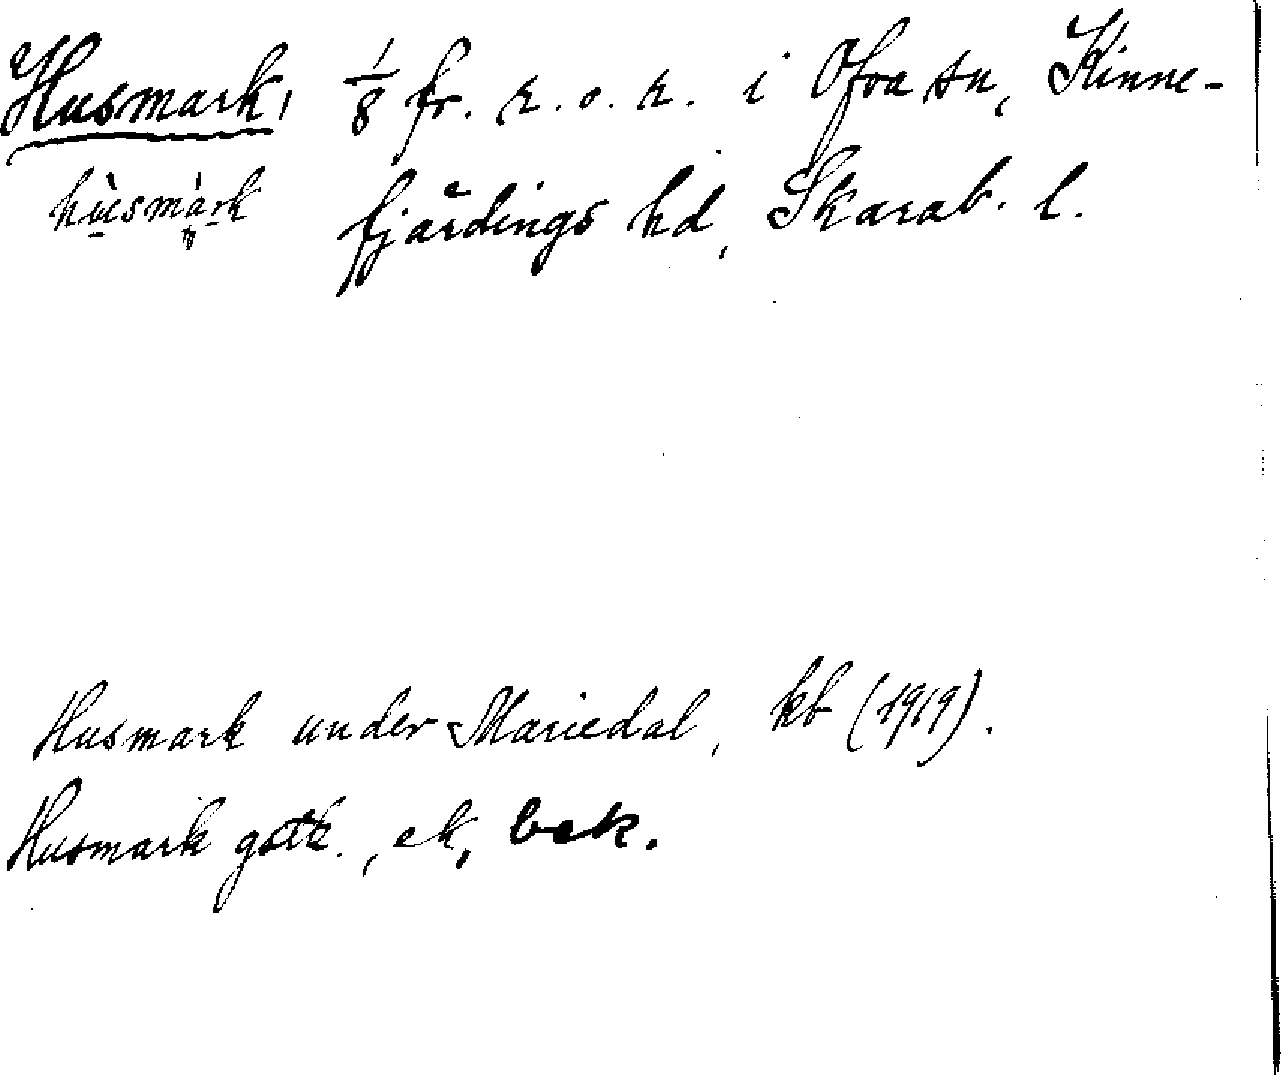 Husmark, 1/8 fr. r. o. r. i Ofva sn, Kinne-
husmark fjärdings hd, Skarab. l.
Husmark under Mariedal, kb (1919).
Husmark gstk., ek, bek.